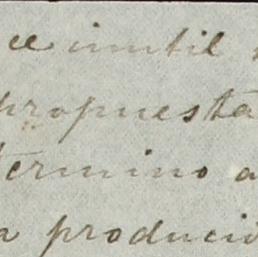 inutil
propuesta
termino a
produció